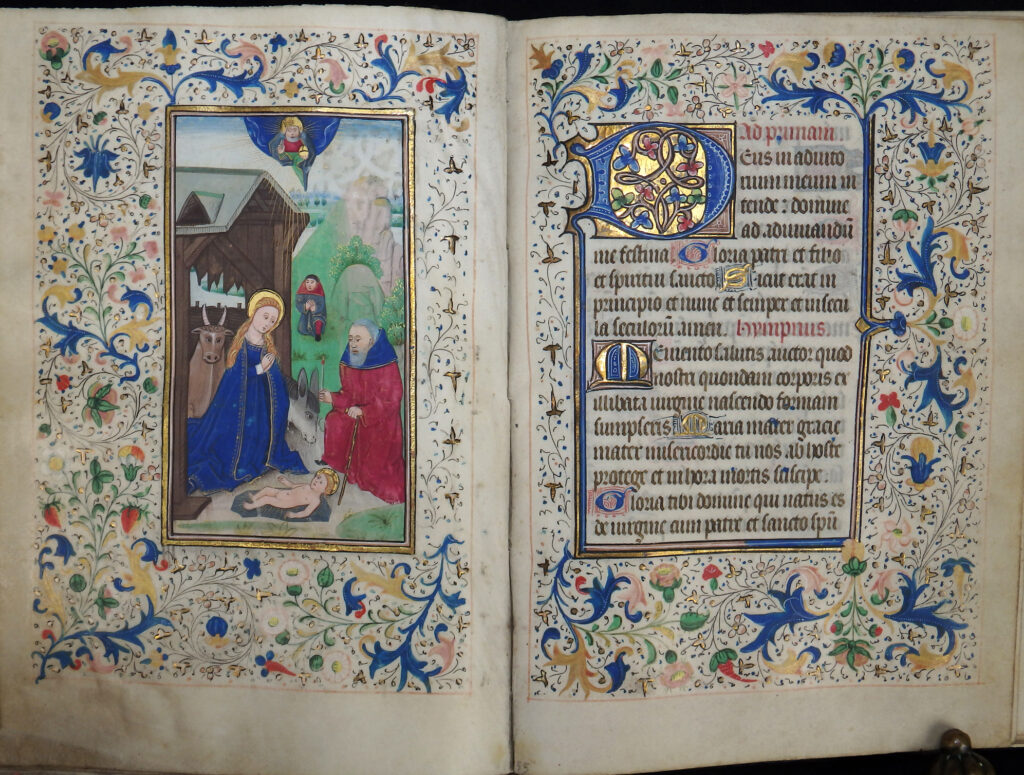 Ad primam
Deus in adiuto
rium meum in
tende : domine
ad adiuuandū
me festina Gloria patri et filio
et spiritui sancto Sicut erat in
principio et nunc et semper et in secu
la seculorū amen. Hympnus
Memento salutis auctor quod
nostri quondam corporis ex
illibata uirgine nascendo formam
sumpseris Maria mater gracie
mater misericordie tu nos ab hoste
protege et in hora mortis suscipe
Gloria tibi domine qui natus es
de uirgine cum patre et sancto spū